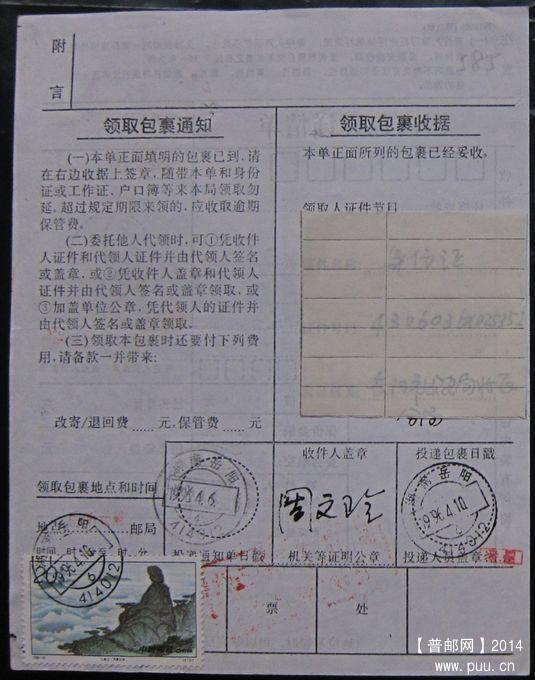 附
言
585
领取包裹通知
(一)本单正面填明的包裹已到,请
在右边收据上签章,随带本单和身份
证或工作证、户口簿等来本局领取勿
延,超过规定期限来领的,应收取逾期
保管费。
(二)委托他人代领时,可①凭收件
人证件和代领人证件并由代领人签名
或盖章,或②凭收件人盖章和代领人
证件并由代领人签名或盖章领取,或
③加盖单位公章,凭代领人的证件并
由代领人签名或盖章领取。
(三)领取本包裹时还要付下列费
用,请备款一并带来:
改寄/退回费 ..... 元,保管费 ..... 元
领取包裹收据
本单正面所列的包裹已经妥收。
领取人证件节目
身份证
领取包裹地点和时间
地点 邮局
投递通知单日戳
湖南岳阳
1996.4.6
414012
收件人盖章
周文玲
机关等证明公章
投递包裹日戳
湖南岳阳
1996.4.10
6
414012
投递人员盖章
岳阳
1996.4.10
6
414012
中国邮政
票 处
【普邮网】2014
www.puu.cn